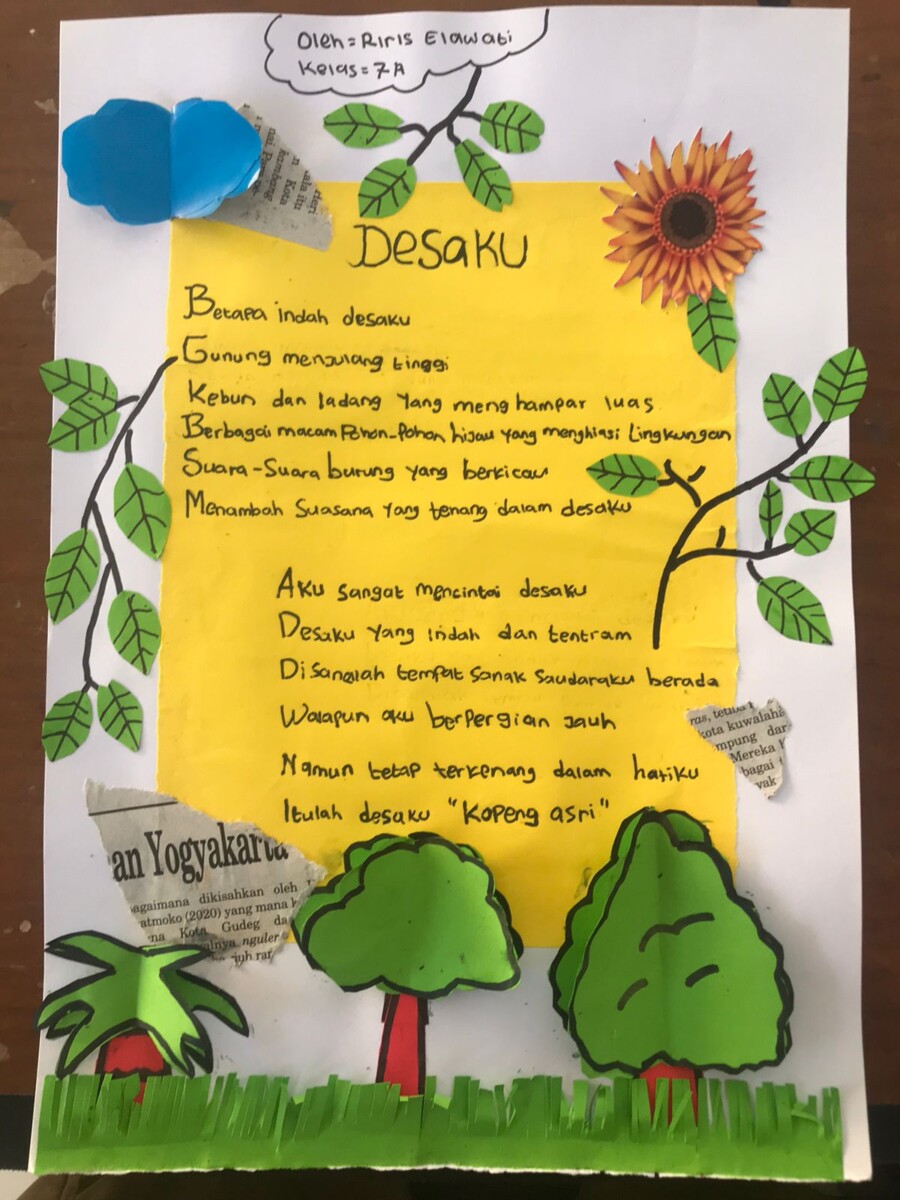 Oleh = Riris Elawati
Kelas = 7A
Desaku
Betapa indah desaku
Gunung menjulang tinggi
Kebun dan ladang yang menghampar luas
Berbagai macam Pohon-Pohon hijau yang menghiasi Lingkungan
Suara-Suara burung yang berkicau
Menambah Suasana yang tenang dalam desaku
Aku sangat mencintai desaku
Desaku yang indah dan tentram
Disanalah tempat sanak saudaraku berada
Walapun aku berpergian jauh
Namun tetap terkenang dalam hatiku
Itulah desaku "Kopeng asri"
ras,
kota kuwalaha
mpung dar
Mereka
bagai
yak
an Yogyakarta
agaimana dikisahkan oleh
atmoko (2020) yang mana
na Kota Gudeg da
alnya nguler
juh rar